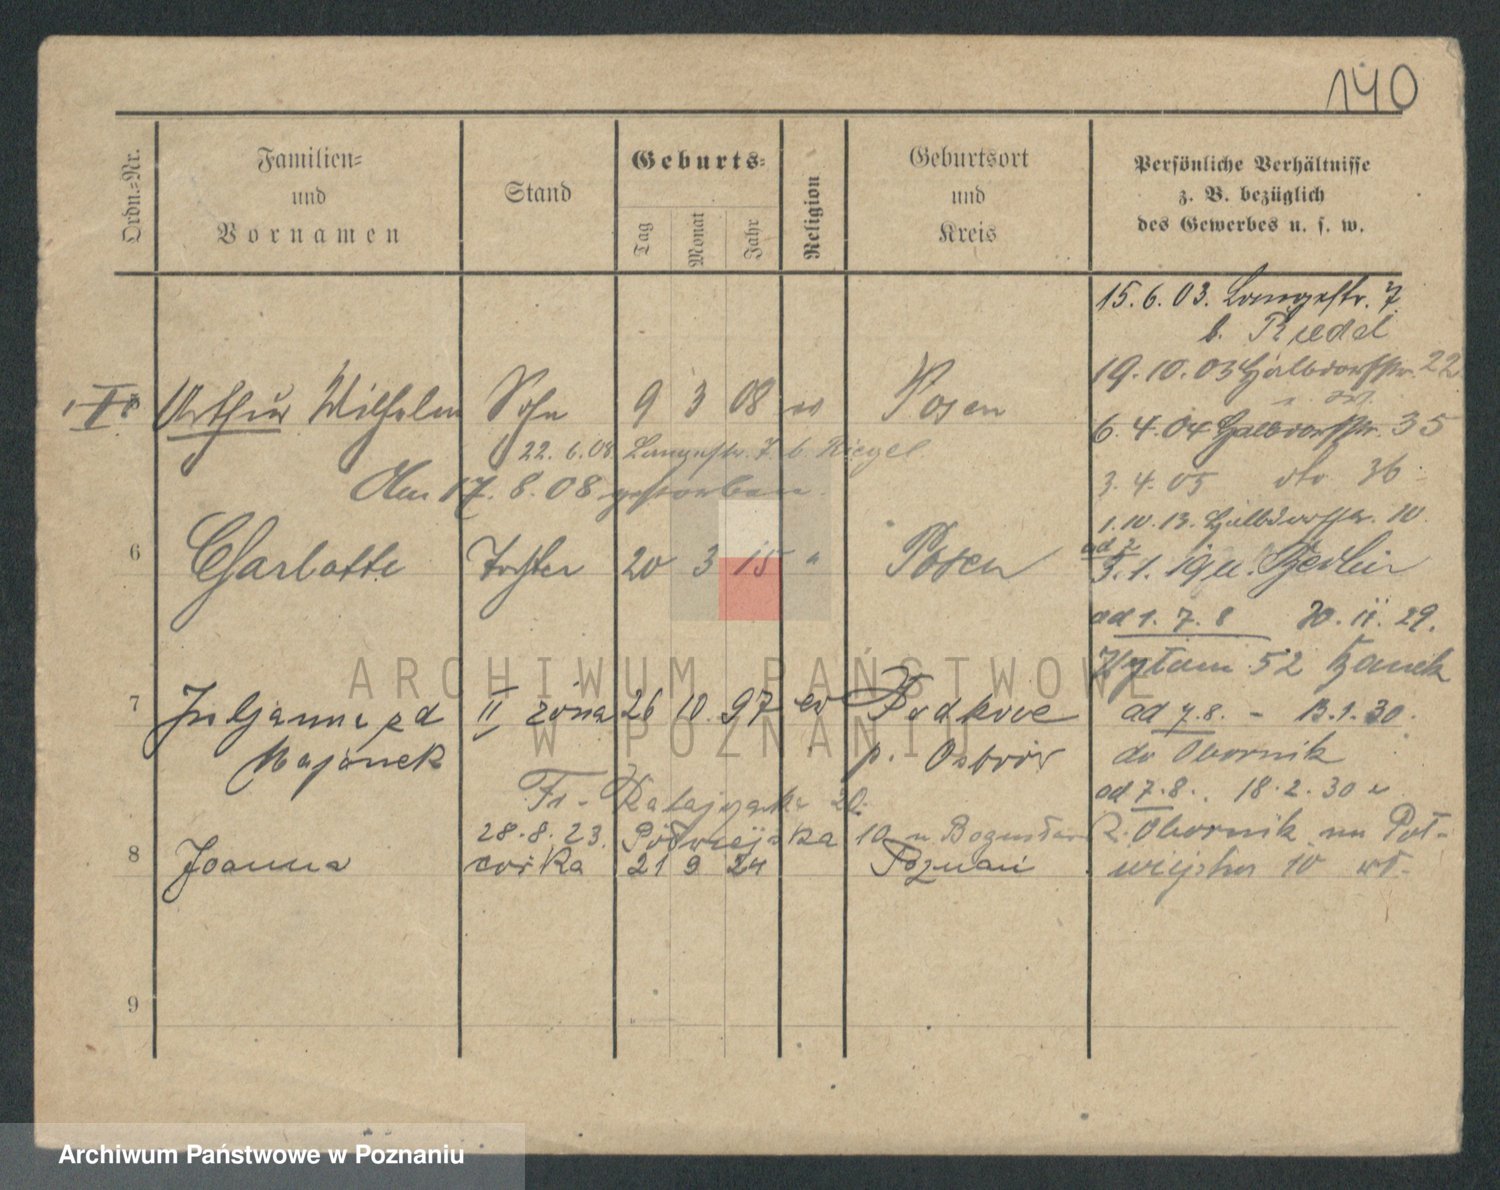 140
Ordn.-Nr.
Familien-
und
Vornamen
Stand
Geburts-
Tag
Monat
Jahr
Religion
Geburtsort
und
Kreis
Persönliche Verhältnisse
z. B. bezüglich
des Gewerbes u. s. w.
15.6.03. Langestr. 7
b. Riedel
19.10.03 Halbdorfstr. 22
Arthur Wilhelm Sohn 9 3 08 ev Posen
6.4.04 Halbdorfstr. 35
22.6.08 Langestr. 7 b. Riegel
3.4.05 dto 36
Am 17.8.08 gestorben.
1.10.13. Halbdorfstr. 10
6 Charlotte Tochter 20 3 15 " Posen
5.1. Berlin
ad 1.7.8 30.11.29.
52
7 Juljanna zd II żona 26 10. 97 ev
ad 7.8. - 13.1.30.
Majanek p.
do Obornik
od 7.8. 18.2.30
Fr. Ratajczaka 20.
28.8.23. Półwiejska 10
z Obornik na Pół-
8 Joanna córka 21 9 24 Poznań
wiejska 10
9
ARCHIWUM PAŃSTWOWE
W POZNANIU
Archiwum Państwowe w Poznaniu